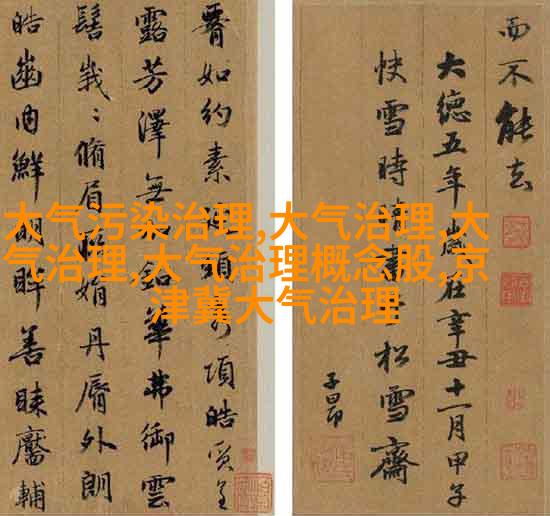 大气污染治理,大气治理,大
气治理,大气治理概念股,京
津冀大气治理
如約素 項皓質呈
露芳澤無 鉛華弗御雲
髻峩〻脩眉 娟丹脣外朗
皓齒内鮮明眸善睞靨輔
而不能去
大德五年歲在辛丑十一月甲子
快雪時晴書 松雪齋
子昂